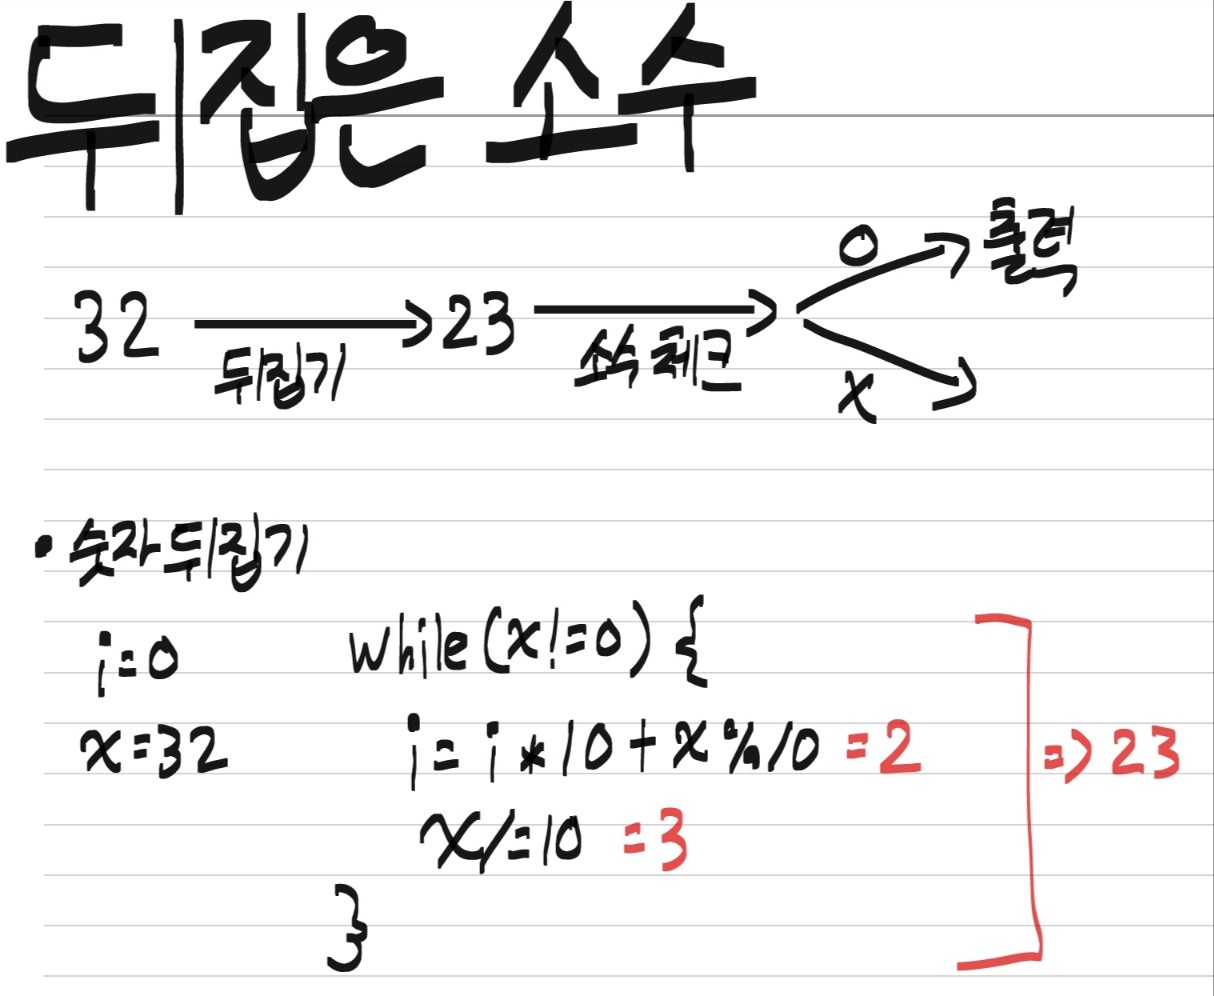 뒤집은 소수
32 → 23 → O → 출력
뒤집기 소수 체크 X →
• 숫자 뒤집기
i=0 while(x!=0) {
x=32 i= i * 10 + x%10 =2 => 23
x/=10 =3
}